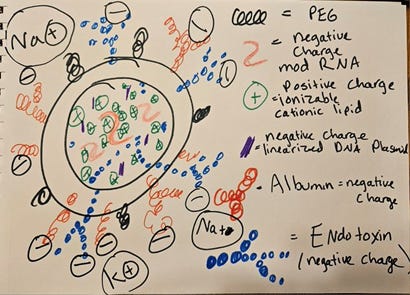 Na+
= PEG
= negative
charge
mod RNA
Positive charge
+ = ionizable
cationic lipid
negative charge
= linearized DNA Plasmid
- Albumin = negative
charge
Na+
K+
= Endotoxin
(negative charge)